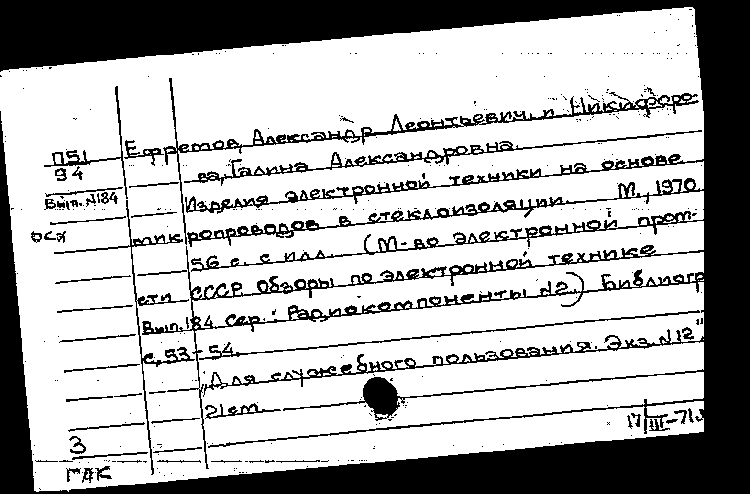 П51
94
Вып. N184
Ефретов, Александр Леонтьевич, и Никифоро-
ва, Галина Александровна.
Изделия электронной техники на основе
микропроводов в стеклоизоляции. М., 1970
56 с. с илл. (М-во электронной пром-
сти СССР. Обзоры по электронной технике
Вып. 184 Сер.: Радиокомпоненты N2.) Библиогр
с. 53-54.
"Для служебного пользования. Экз. N12".
21 см.
17/III-71
3
ГАК